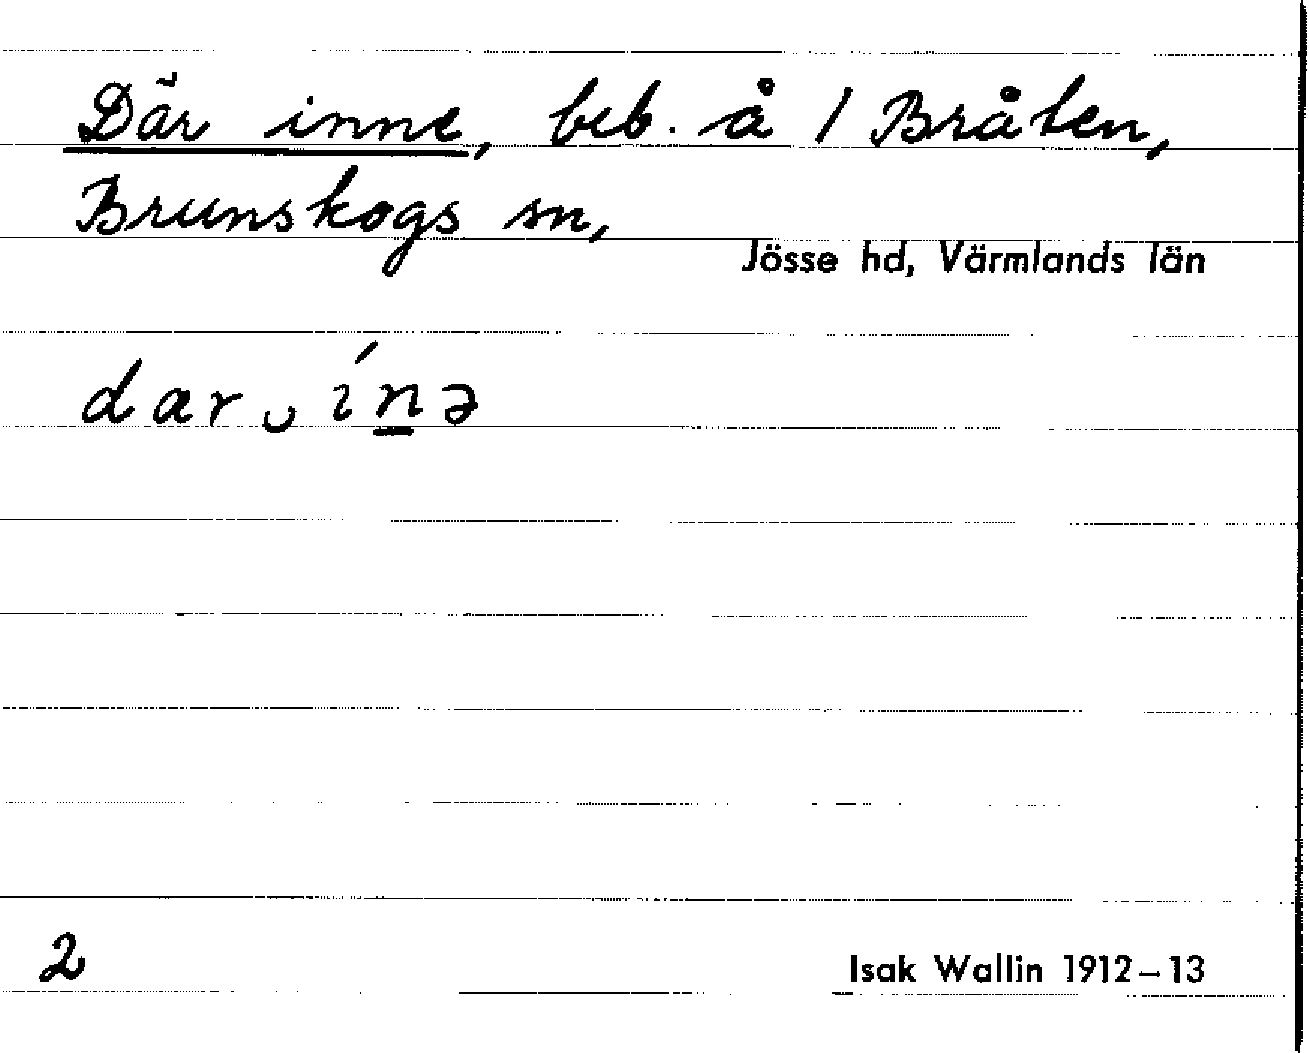 Där inne, beb. å 1 Bråten,
Brunskogs sn,
Jösse hd, Värmlands län
dær ᴗ ínə
2
Isak Wallin 1912–13